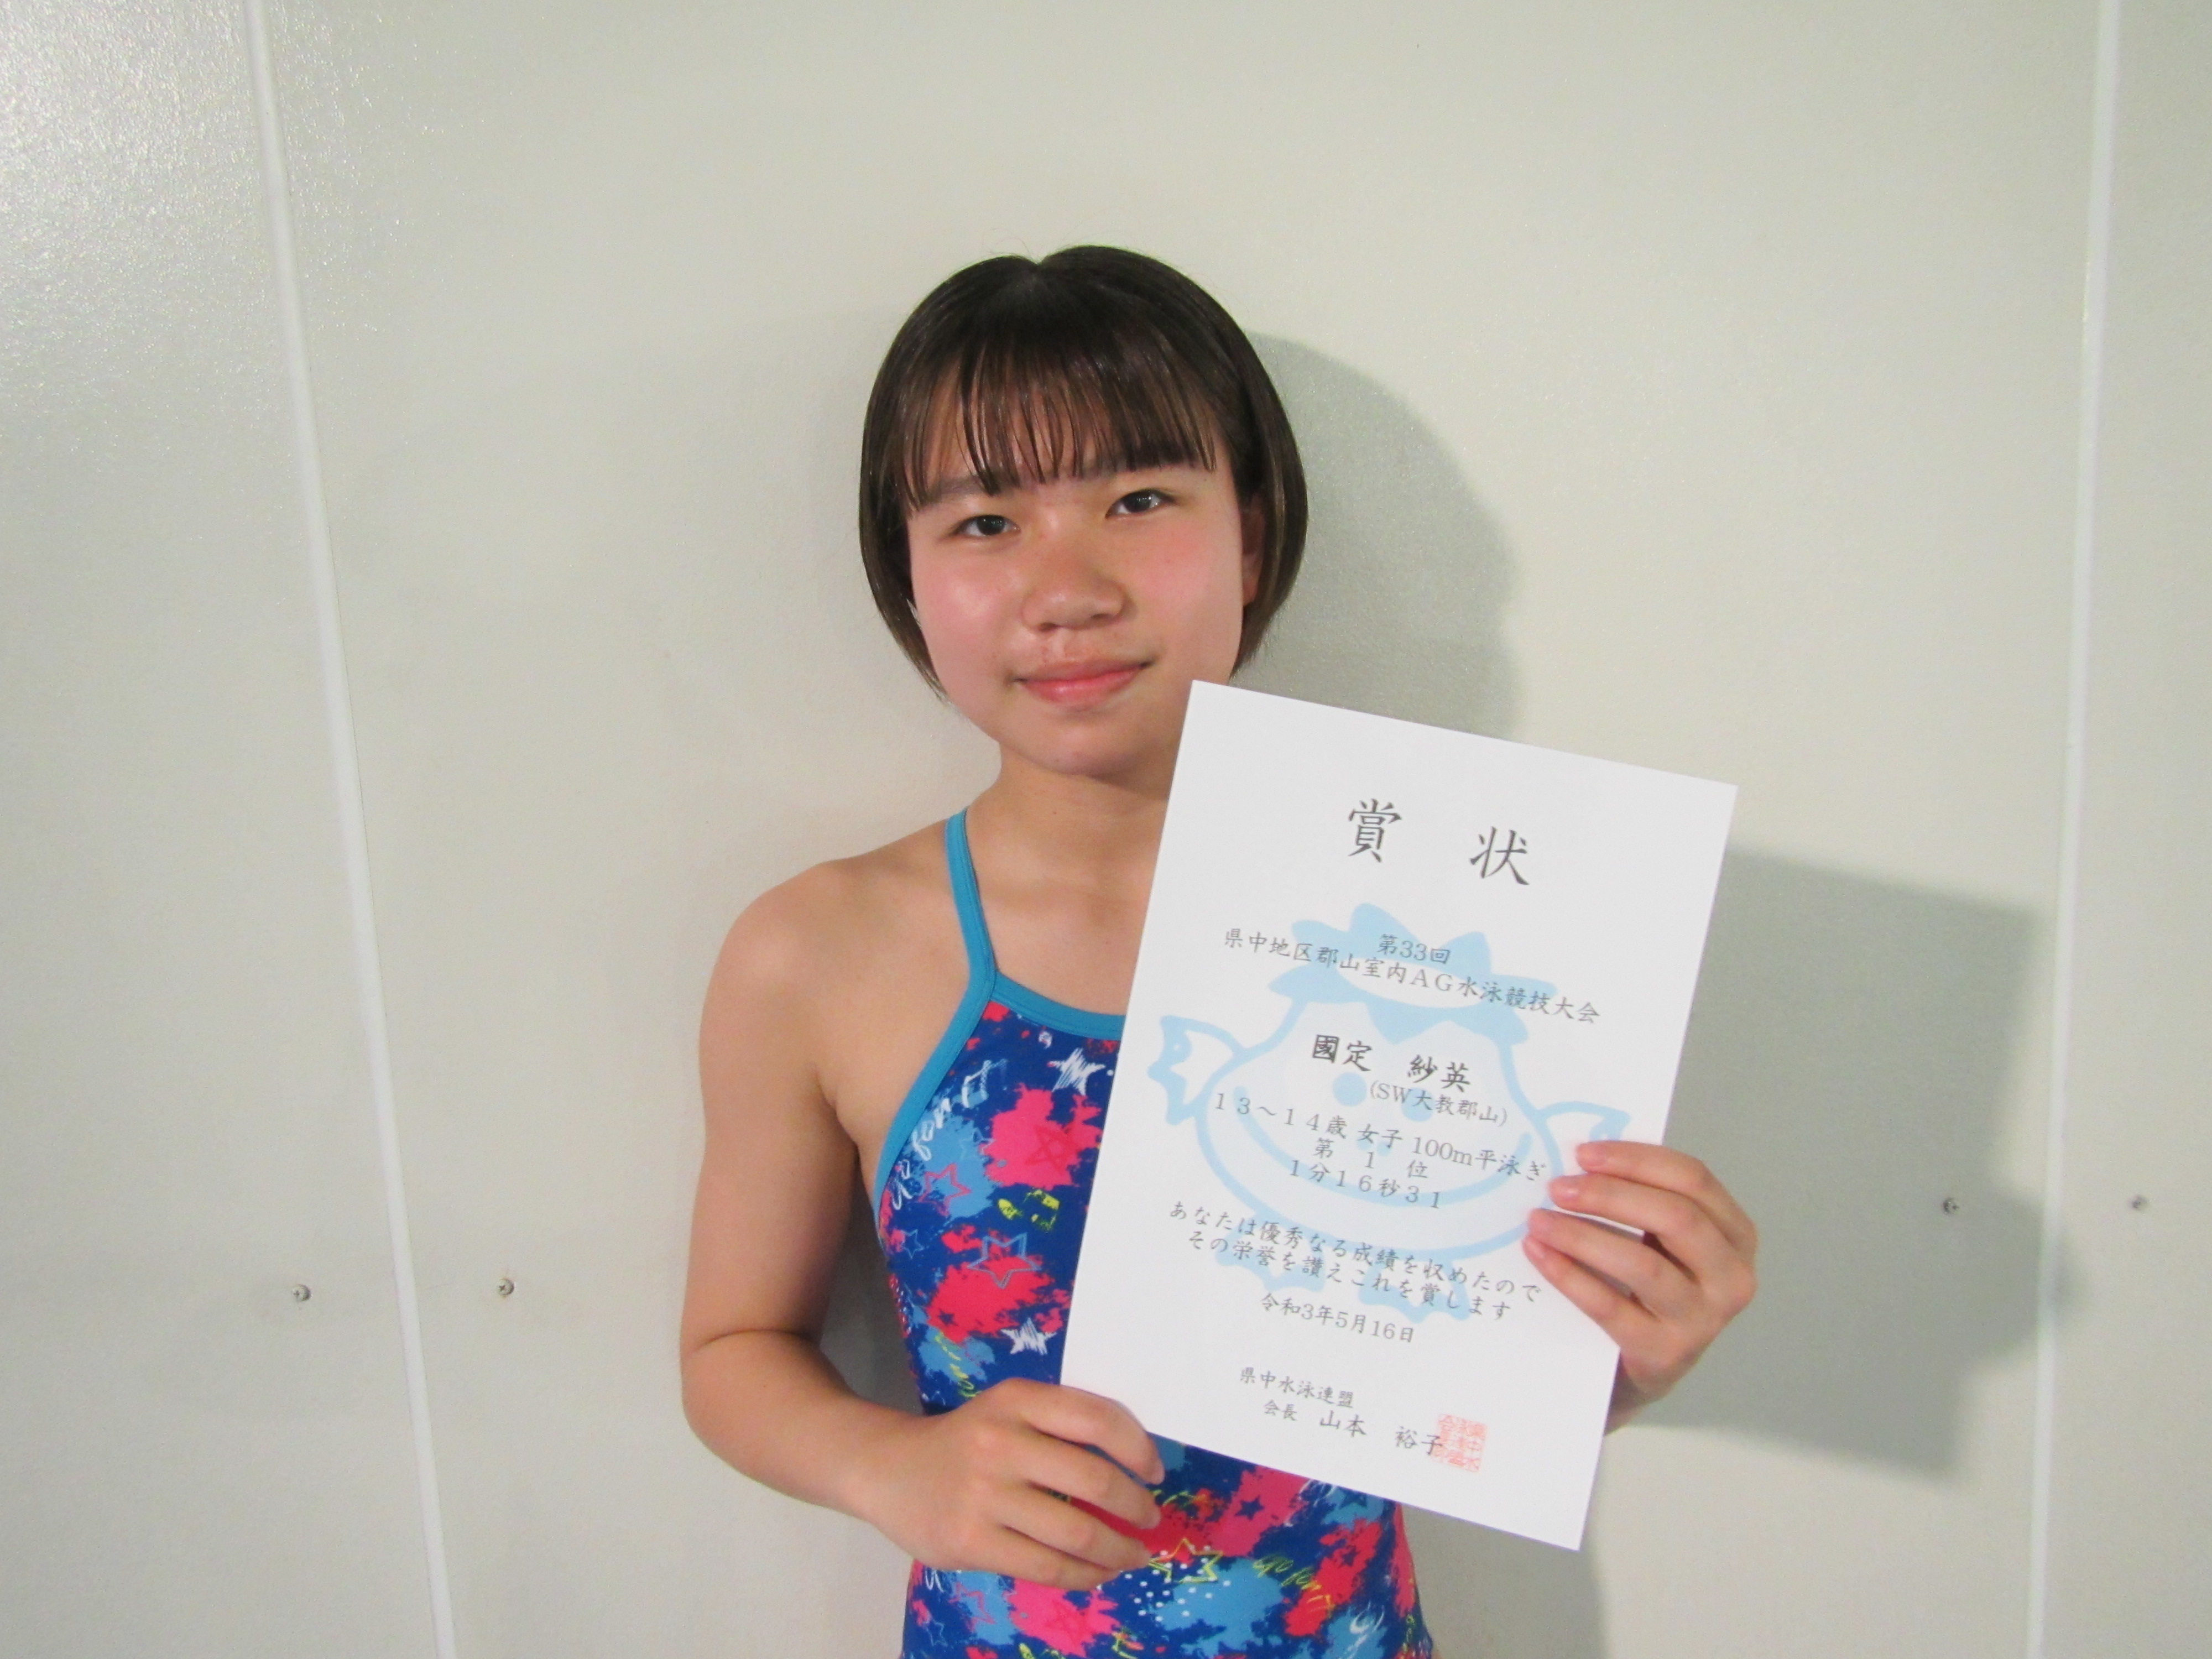 賞状
第33回
県中地区郡山室内AG水泳競技大会
國定 紗英
(SW大教郡山)
13～14歳 女子 100m平泳ぎ
第 1 位
1分16秒31
あなたは優秀なる成績を収めたので
その栄誉を讃えこれを賞します
令和3年5月16日
県中水泳連盟
会長 山本 裕子